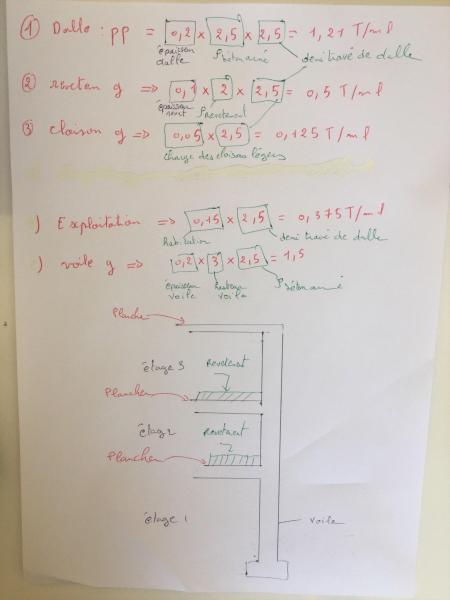 ① Dalle : pp = 0,2 x 2,5 x 2,5 = 1,21 T/ml
épaisseur dalle ρbéton armé demi travé de dalle
② g => 0,1 x 2 x 2,5 = 0,5 T/ml
épaisseur revet ρrevetement
③ cloison g => 0,05 x 2,5 = 0,125 T/ml
charge des cloisons légers
) Exploitation => 0,15 x 2,5 = 0,375 T/ml
habitation demi travé de dalle
) voile g => 0,2 x 3 x 2,5 = 1,5
épaisseur voile hauteur voile ρbéton armé
Plancher
étage 3 Revetement
Plancher
étage 2 Revetement
Plancher
étage 1 voile